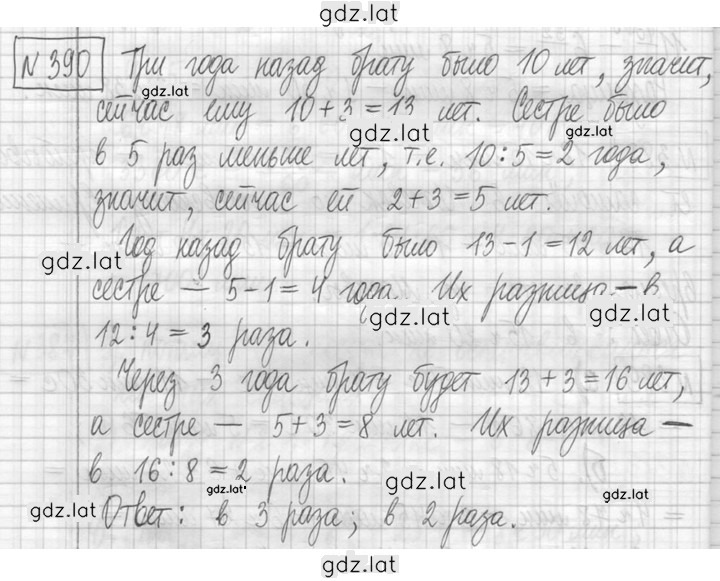 gdz.lat
№390 Три года назад брату было 10 лет, значит,
gdz.lat
сейчас ему 10+3=13 лет. Сестре было
gdz.lat gdz.lat
в 5 раз меньше лет, т.е. 10:5=2 года,
значит, сейчас ей 2+3=5 лет.
Год назад брату было 13-1=12 лет, а
gdz.lat
сестре — 5-1=4 года. Их разница — в
gdz.lat gdz.lat
12:4=3 раза.
Через 3 года брату будет 13+3=16 лет,
а сестре — 5+3=8 лет. Их разница —
в 16:8=2 раза.
gdz.lat gdz.lat gdz.lat
gdz.lat Ответ: в 3 раза; в 2 раза.
gdz.lat